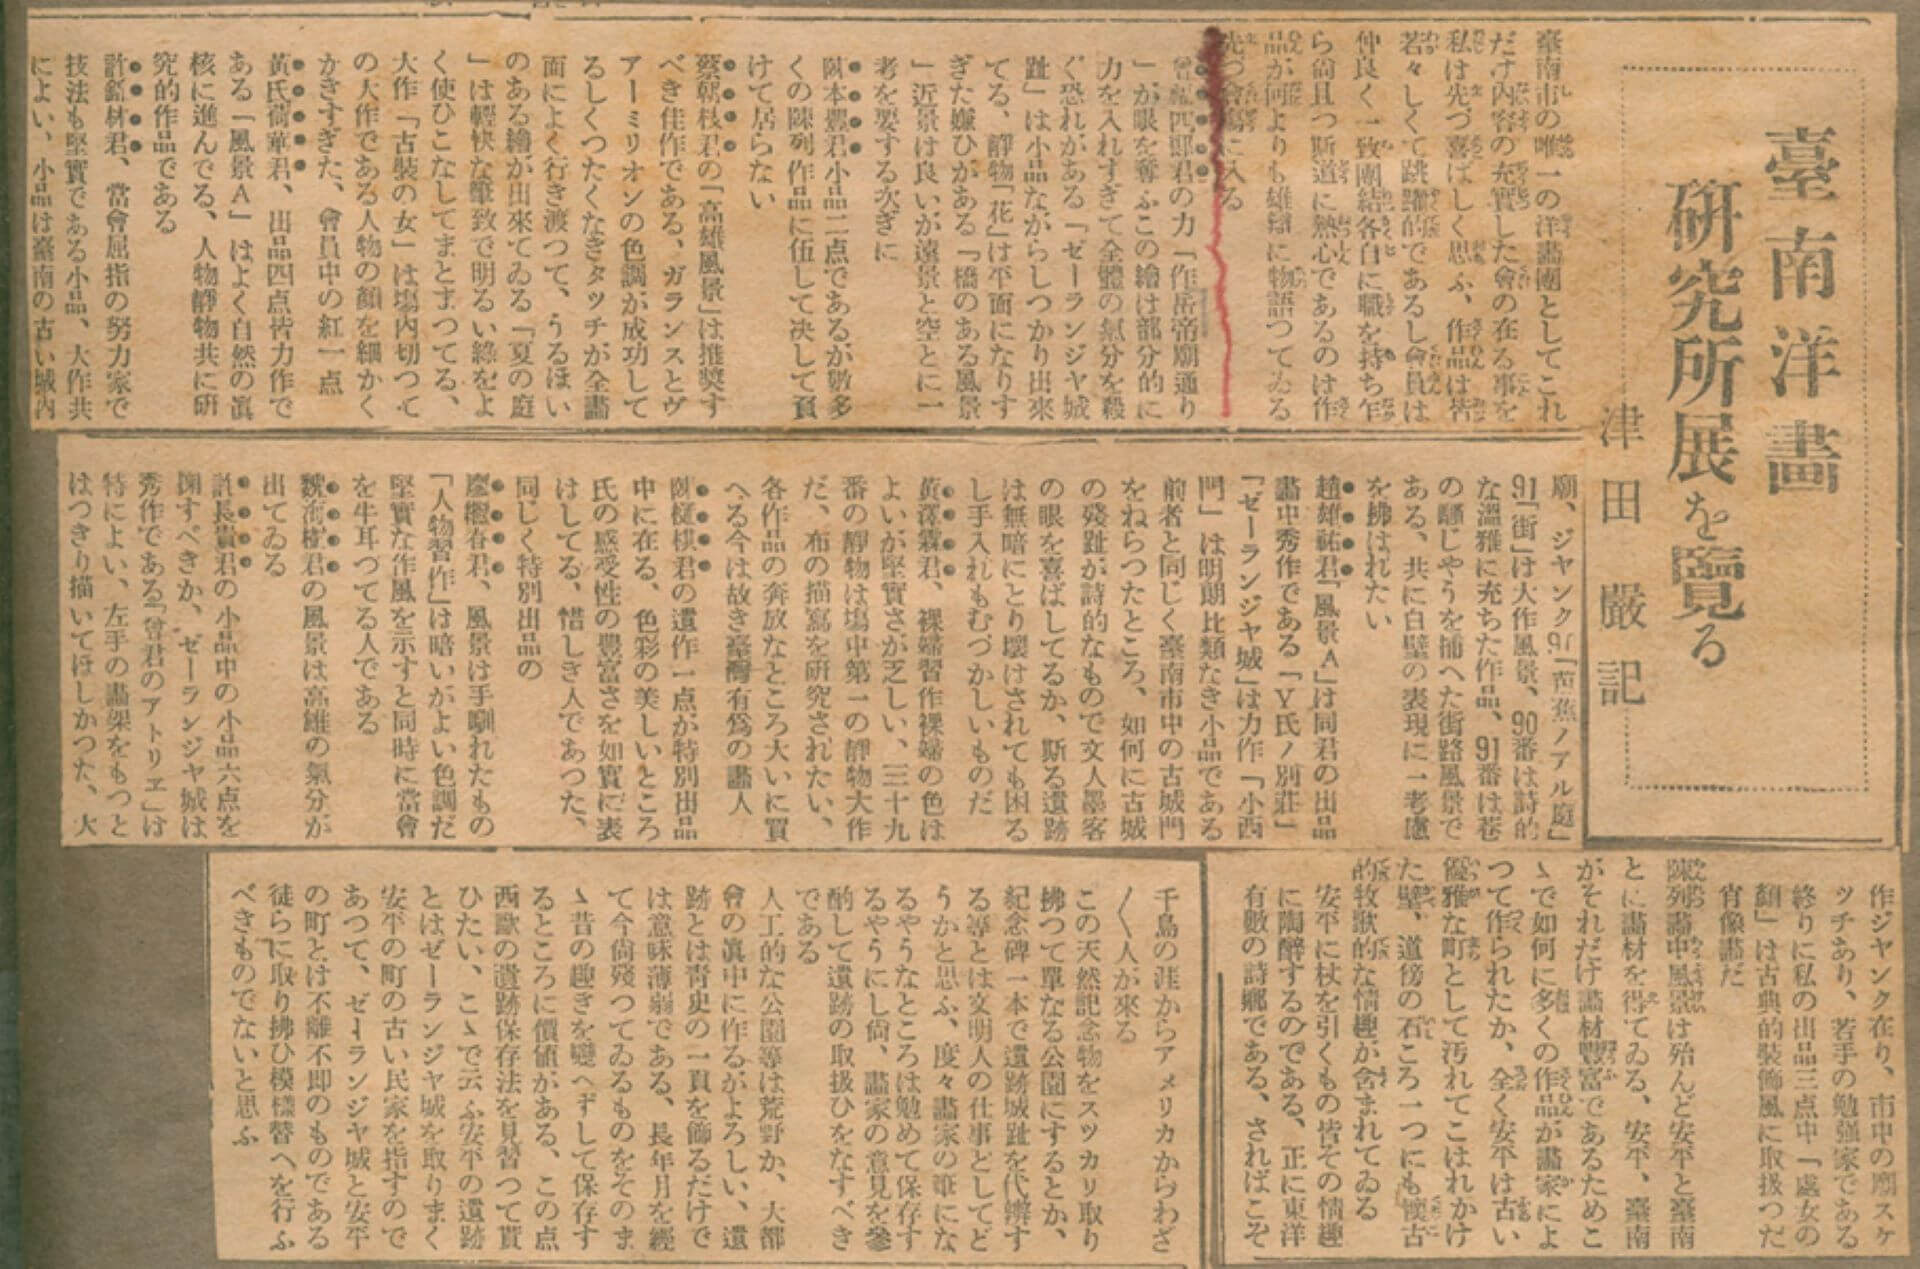 臺南洋畫
研究所展を覽る
津田嚴記
臺南市の唯一の洋畫團としてこれ
だけ内容の充實した會の在る事を
私は先づ喜ばしく思ふ、作品は皆
若々しくて跳躍的であるし會員は
仲良く一致團結各自に職を持ち乍
ら尚且つ斯道に熱心であるのは作
品が何よりも雄辯に物語つてゐる
先づ會場に入る
君の力「作岳帝廟通り
」が眼を奪ふこの繪は部分的に
力を入れすぎて全體の氣分を殺
ぐ恐れがある「ゼーランジヤ城
趾」は小品ながらしつかり出來
てる、靜物「花」は平面になりす
ぎた嫌ひがある「橋のある風景
」近景は良いが遠景と空とに一
考を要する次ぎに
君小品二点であるが數多
くの陳列作品に伍して決して負
けて居らない
蔡朝枝君の「高雄風景」は推奬す
べき佳作である、ガランスとヴ
アーミリオンの色調が成功して
るしくつたくなきタツチが全畵
面によく行き渡つて、うるほい
のある繪が出來てゐる「夏の庭
」は輕快な筆致で明るい綠をよ
く使ひこなしてまとまつてる、
大作「古裝の女」は場内切つて
の大作である人物の顔を細かく
かきすぎた、會員中の紅一点
黃氏荷華君、出品四点皆力作で
ある「風景A」はよく自然の眞
核に進んでる、人物靜物共に研
究的作品である
君、當會屈指の努力家で
技法も堅實である小品、大作共
によい、小品は臺南の古い城内
廟、ジヤンク91「芭蕉ノアル庭」
91「街」は大作風景、90番は詩的
な溫雅に充ちた作品、91番は巷
の騷じやうを捕へた街路風景で
ある、共に白壁の表現に一考慮
を拂はれたい
趙雄祐君「風景A」は同君の出品
畵中秀作である「Y氏ノ別莊」
「ゼーランジヤ城」は力作「小西
門」は明朗比類なき小品である
前者と同じく臺南市中の古城門
をねらつたところ、如何に古城
の殘趾が詩的なもので文人墨客
の眼を喜ばしてるか、斯る遺跡
は無暗にとり壞はされても困る
し手入れもむづかしいものだ
黃澤霖君、裸婦習作裸婦の色は
よいが堅實さが乏しい、三十九
番の靜物は場中第一の靜物大作
だ、布の描寫を研究されたい、
各作品の奔放なところ大いに買
へる今は故き臺灣有爲の畵人
君の遺作一点が特別出品
中に在る、色彩の美しいところ
氏の感受性の豐富さを如實に表
はしてる、惜しき人であつた、
同じく特別出品の
廖繼春君、風景は手馴れたもの
「人物習作」は暗いがよい色調だ
堅實な作風を示すと同時に當會
を牛耳づてる人である
君の風景は高雄の氣分が
出てゐる
許長貴君の小品中の小品六点を
關すべきか、ゼーランジヤ城は
秀作である「曾君のアトリヱ」は
特によい、左手の畵架をもつと
はつきり描いてほしかつた、大
作ジヤンク在り、市中の廟スケ
ツチあり、若手の勉强家である
終りに私の出品三点中「處女の
顏」は古典的裝飾風に取扱つた
肖像畵だ
陳列畵中風景は殆んど安平と臺南
とに畵材を得てゐる、安平、臺南
がそれだけ畵材豐富であるためこ
ゝで如何に多くの作品が畵家によ
つて作られたか、全く安平は古い
優雅な町として汚れてこはれかけ
た壁、道傍の石ころ一つにも懷古
的牧歌的な情趣が含まれてゐる
安平に杖を引くもの皆その情趣
に陶醉するのである、正に東洋
有數の詩鄕である、さればこそ
千島の涯からアメリカからわざ
〱人が來る
この天然記念物をスツカリ取り
拂つて單なる公園にするとか、
紀念碑一本で遺跡城趾を代辨す
る等とは文明人の仕事としてど
うかと思ふ、度々畵家の筆にな
るやうなところは勉めて保存す
るやうにし尙、畵家の意見を參
酌して遺跡の取扱ひをなすべき
である
人工的な公園等は荒野か、大都
會の眞中に作るがよろしい、遺
跡とは靑史の一頁を飾るだけで
は意味薄弱である、長年月を經
て今尙殘つてゐるものをそのま
ゝ昔の趣きを變へずして保存す
るところに價値がある、この点
西歐の遺跡保存法を見習つて貰
ひたい、こゝで云ふ安平の遺跡
とはゼーランジヤ城を取りまく
安平の町の古い民家を指すので
あつて、ゼーランジヤ城と安平
の町とは不離不卽のものである
徒らに取り拂ひ模樣替へを行ふ
べきものでないと思ふ